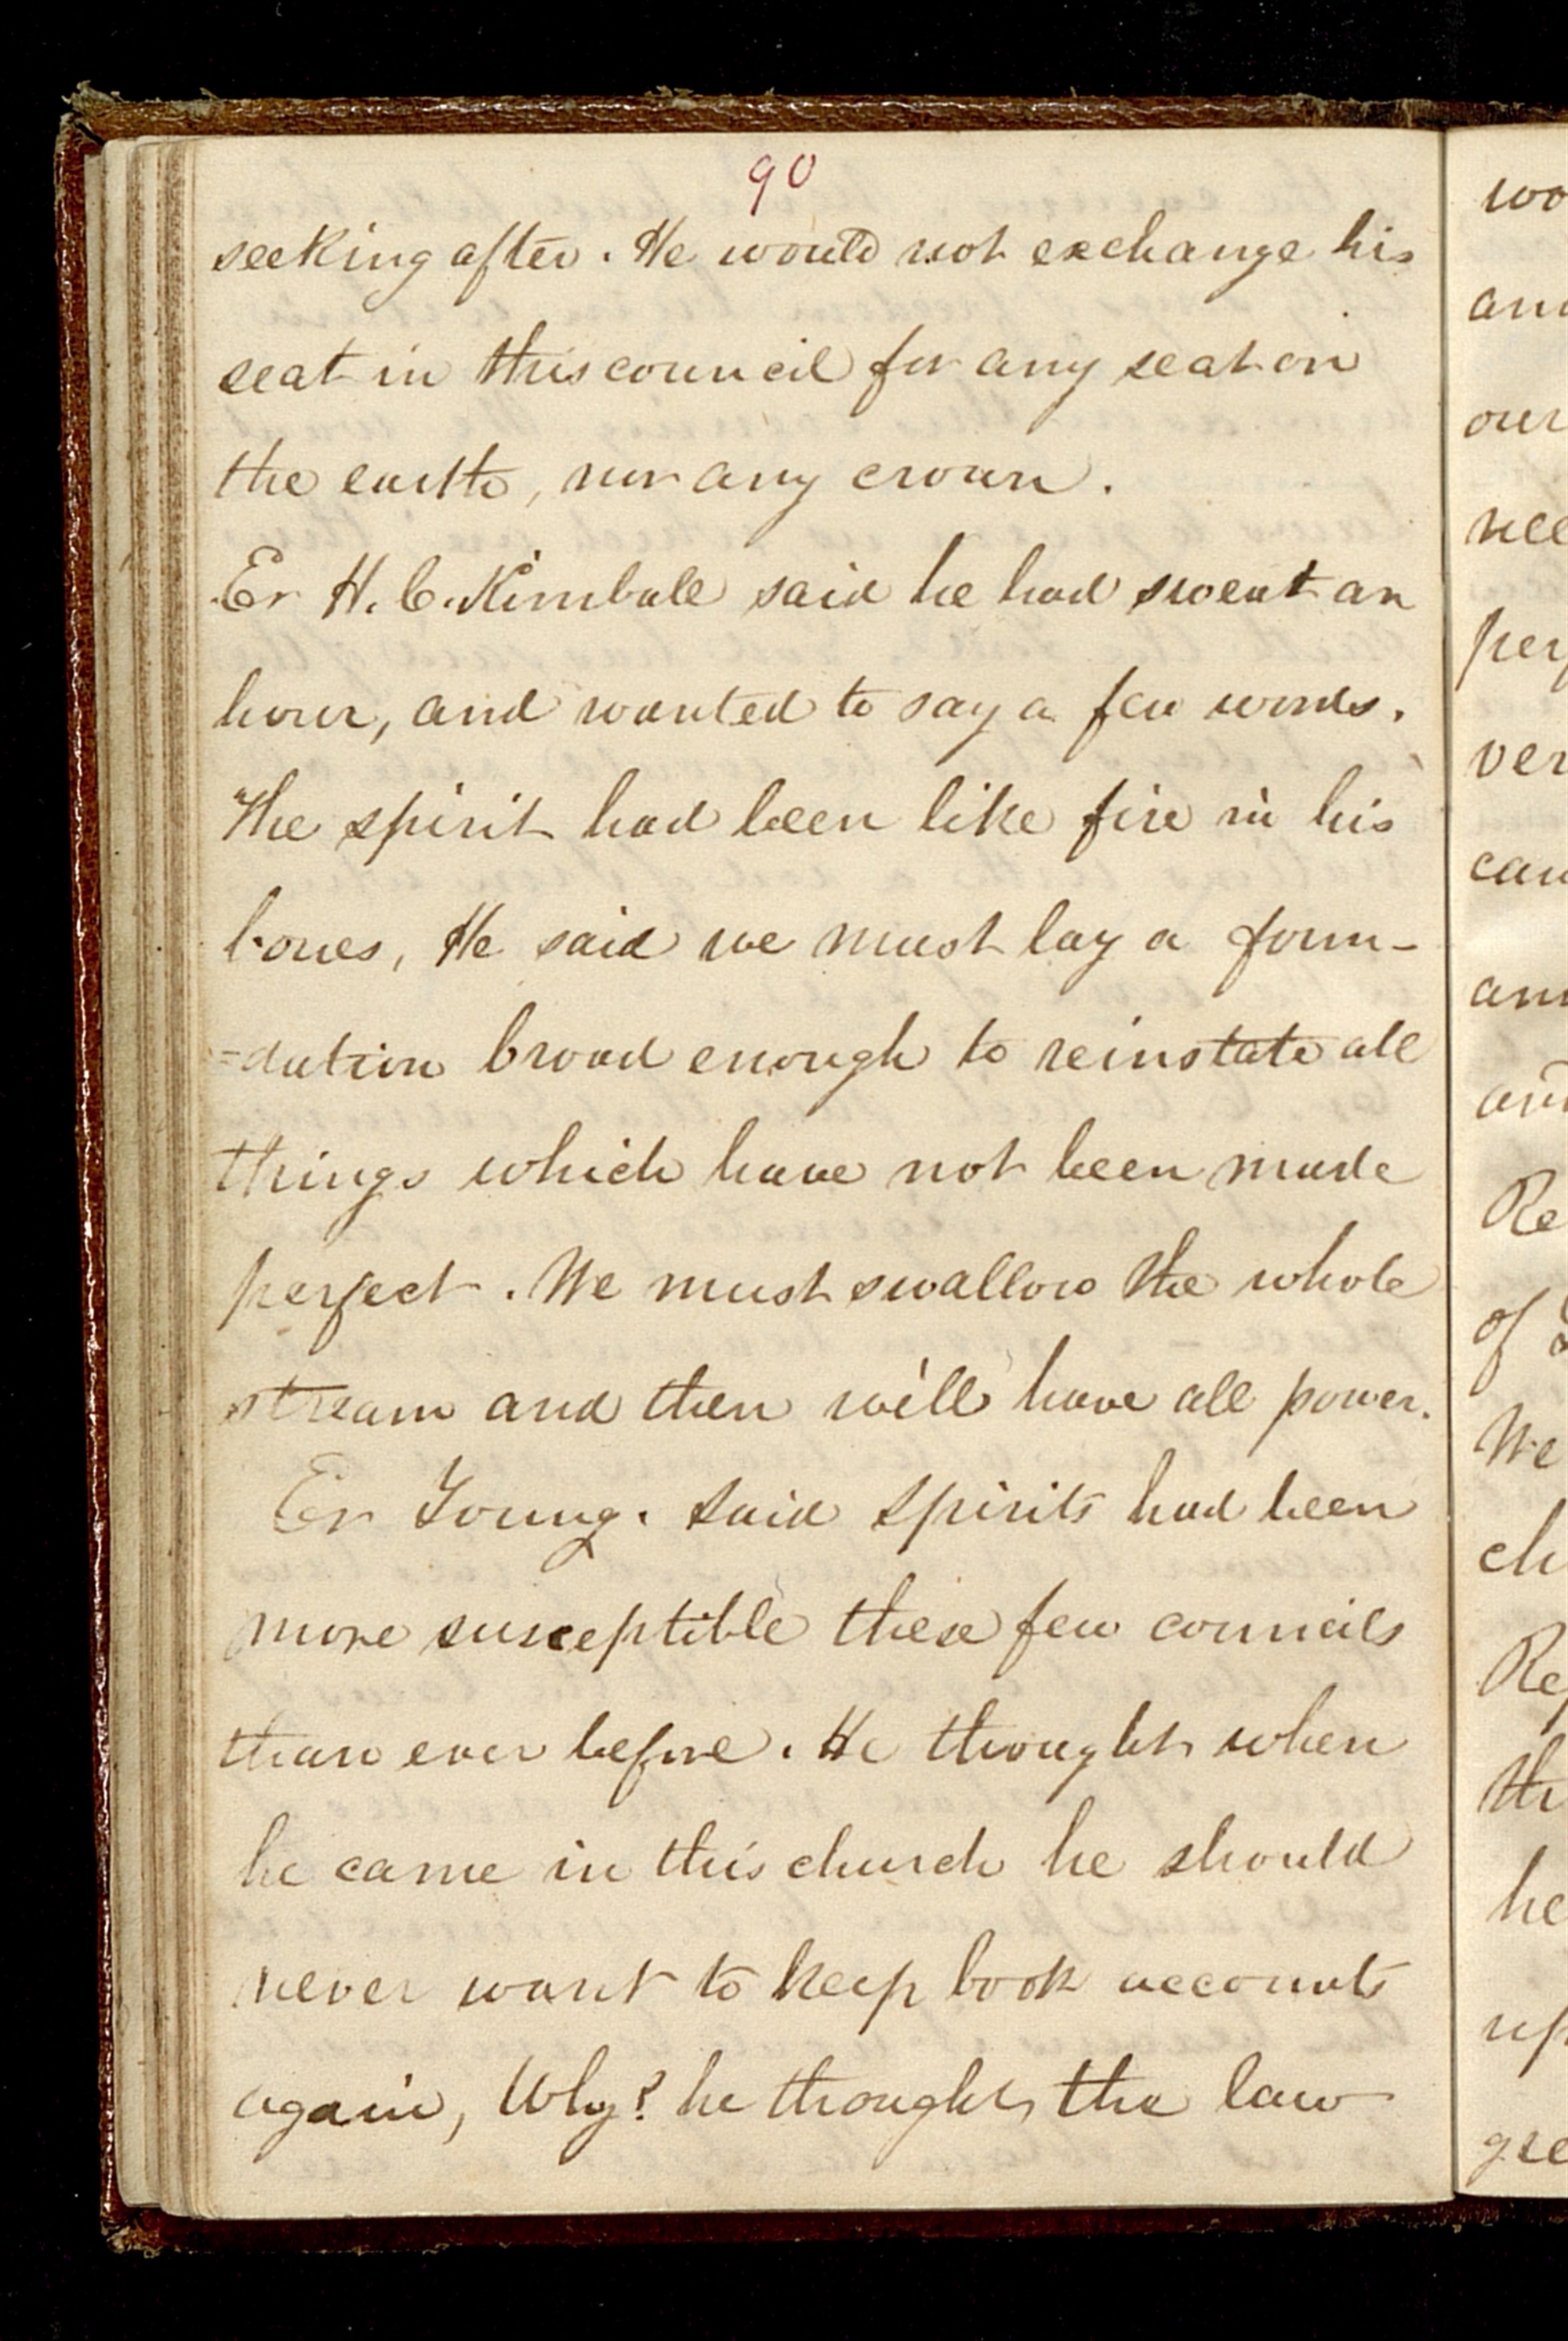 90
seeking after. He would not exchange his
seat in this council for any seat on
the earth, nor any crown.
Er H. C. Kimball said he had sweat an
hour, and wanted to say a few words.
The spirit had been like fire in his
bones, He said we must lay a foun-
=dation broad enough to reinstate all
things which have not been made
perfect. We must swallow the whole
stream and then will have all power.
Er Young. said spirits had been
more susceptible these few councils
than ever before. He thought when
he came in this church he should
never want to keep book accounts
again, Why? he thought the law
wo
am
our
nee
per
ver
can
an
Re
of
We
ch
Re
th
he
up
gre